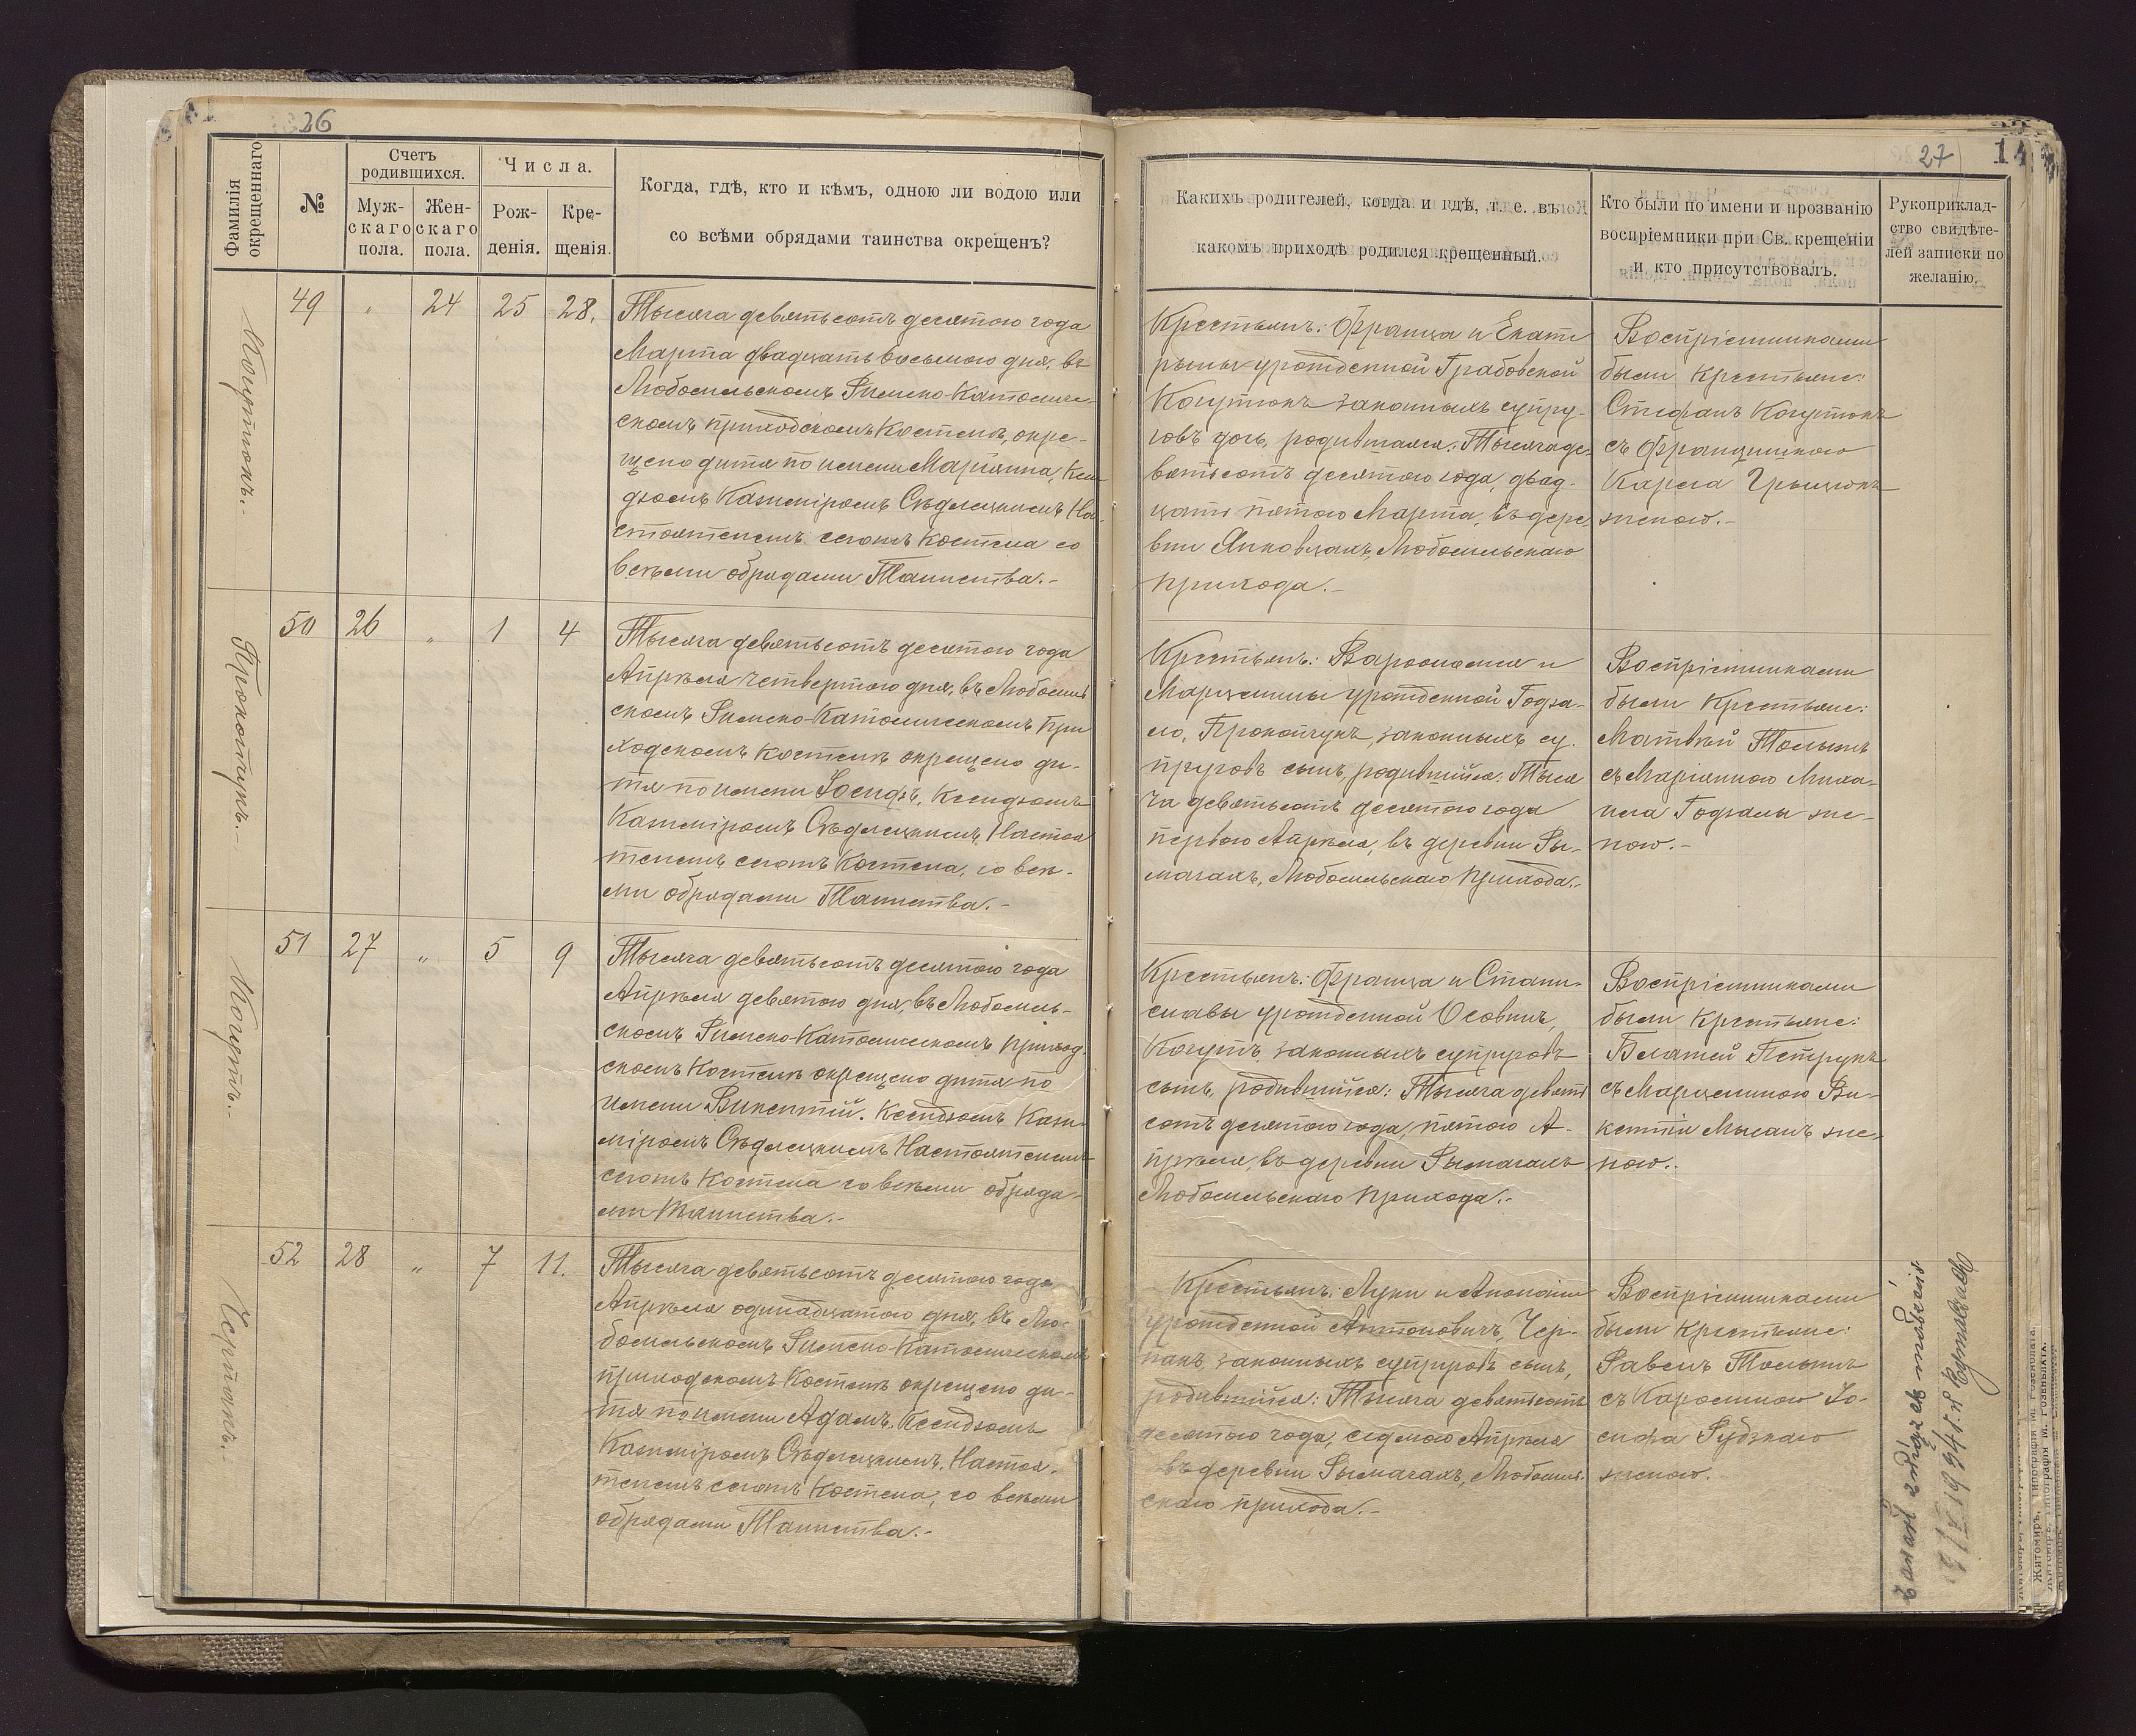 26
Фамилія
окрещеннаго
№
Счетъ
родившихся.
Муж-
скаго
пола.
Жен-
скаго
пола.
Числа.
Рож-
денія.
Кре-
щенія.
Когда, гдѣ, кто и кѣмъ, одною ли водою или
со всѣми обрядами таинства окрещенъ?
Когутюкъ.
49 " 24 25 28.
Тысяча девятьсотъ десятого года
Марта двадцать восьмого дня, въ
Любомльскомъ Римско-Католиче-
скомъ приходскомъ Костелѣ, окре-
щено дитя по имени Маріянна, Ксен-
дзомъ Казиміромъ Сѣдлецкимъ На-
стоятелемъ сегожъ Костела со
всѣми обрядами Таинства.-
Прокопчукъ.-
50 26 " 1 4
Тысяча девятьсотъ десятого года
Апрѣля четвертого дня, въ Любомль
скомъ Римско-Католическомъ При
ходскомъ Костелѣ окрещено ди-
тя по имени Іосифъ, Ксендзомъ
Казиміромъ Сѣдлецкимъ, Настоя
телемъ сегожъ Костела, со всѣ-
ми обрядами Таинства.-
Когутъ.
51 27 " 5 9
Тысяча девятьсотъ десятого года
Апрѣля девятого дня, въ Любомль-
скомъ Римско-Католическомъ приход
скомъ Костелѣ окрещено дитя по
имени Викентій. Ксендзомъ Кази-
міромъ Сѣдлецкимъ Настоятелемъ
сегожъ Костела со всѣми обряда-
ми Таинства.-
Черпакъ.-
52 28 " 7 11.
Тысяча девятьсотъ десятого года
Апрѣля одинадцатого дня, въ Лю-
бомльскомъ Римско-Католическомъ
приходскомъ Костелѣ окрещено ди-
тя по имени Адамъ. Ксендзомъ
Казиміромъ Сѣдлецкимъ, Настоя-
телемъ сегожъ Костела, со всѣми
обрядами Таинства.-
27
14
Какихъ родителей, когда и гдѣ, т. е. въ
какомъ приходѣ родился крещенный.
Кто были по имени и прозванію
воспріемники при Св. крещеніи
и кто присутствовалъ.
Рукоприклад-
ство свидѣте-
лей записки по
желанію.
Крестьянъ: Франца и Екате
рины урожденной Грабовской
Когутюкъ законныхъ супру-
говъ дочь, родившаяся: Тысяча де-
вятьсотъ десятого года, двад-
цать пятого Марта, въ дере-
вни Янковцахъ, Любомльскаго
прихода.-
Воспріемниками
были Крестьяне:
Стефанъ Когутюкъ
съ Францишкою
Карла Грыцюкъ
женою.-
Крестьянъ: Варфоломея и
Марцелины урожденной Годза-
ло, Прокопчукъ, законныхъ су-
пруговъ сынъ, родившійся: Тыся
ча девятьсотъ десятого года
первого Апрѣля, въ деревни Ры-
мачахъ, Любомльскаго Прихода.-
Воспріемниками
были Крестьяне:
Матвѣй
съ Маріянною Миха-
ила Годзалы же-
ною.-
Крестьянъ: Франца и Стани-
славы урожденной Осовикъ,
Когутъ, законныхъ супруговъ
сынъ, родившійся: Тысяча девять
сотъ десятого года, пятого А-
прѣля, въ деревни Рымачахъ
Любомльскаго Прихода.-
Воспріемниками
были Крестьяне:
Блажей Петрукъ
съ Марцелиною Ви-
кентія же-
ною.-
Крестьянъ: Луки и Аполоніи
урожденной Антоновичъ, Чер-
пакъ, законныхъ супруговъ сынъ,
родившійся: Тысяча девятьсотъ
десятого года, седмого Апрѣля
въ деревни Рымачахъ, Любомль-
скаго прихода.-
Воспріемниками
были Крестьяне:
Павелъ
съ Каролиною Іо-
сифа Рудзкаго
женою.